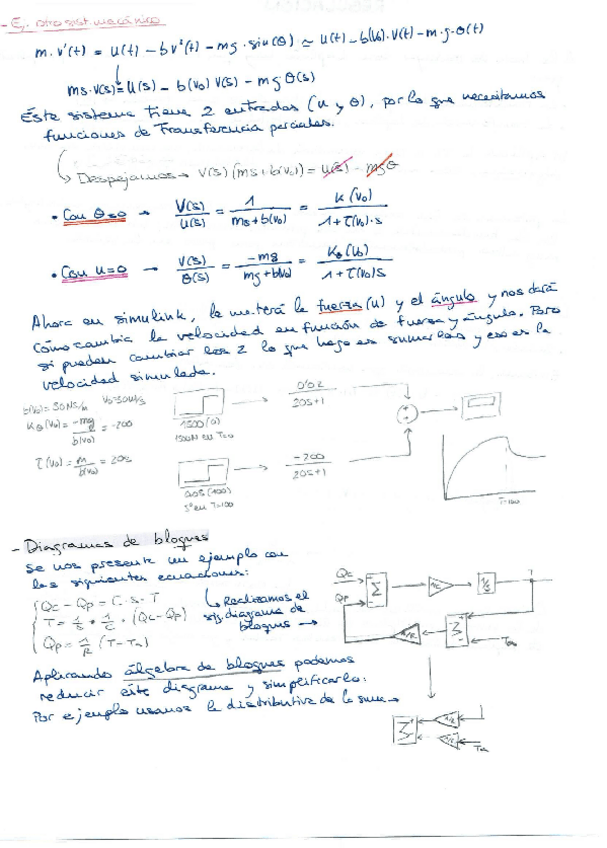 - Ej. otro sist. mecánico
m · v'(t) = u(t) - bv²(t) - mg · sin(θ) ≃ u(t) - b(v₀) · v(t) - m·g·θ(t)
ms·V(s) = U(s) - b(v₀) V(s) - mg θ(s)
Éste sistema tiene 2 entradas (u y θ), por lo que necesitamos
funciones de Transferencia parciales.
Despejamos → V(s) (ms + b(v₀)) = U(s) - mgθ
• Con θ=0 → V(s)/U(s) = 1/(ms + b(v₀)) = K(v₀)/(1 + τ(v₀)·s)
• Con u=0 → V(s)/θ(s) = -mg/(ms + b(v₀)) = Kθ(v₀)/(1 + τ(v₀)s)
Ahora en simulink, le meterá la fuerza (u) y el ángulo y nos dará
cómo cambia la velocidad en función de fuerza y ángulo. Pero
si pueden cambiar los 2 lo que hago es sumarlos y eso es la
velocidad simulada.
b(v₀) = 50 NS/m V₀ = 30 m/s
Kθ(v₀) = -mg/b(v₀) = -200
τ(v₀) = m/b(v₀) = 20s
1500 (0)
1500N en T=0
0'02/20s+1
0.05 (100)
3° en T=100
-200/20s+1
T=100
- Diagramas de bloques
Se nos presenta un ejemplo con
las siguientes ecuaciones:
Qc - Qp = C · s · T
T = 1/s · 1/C · (Qc - Qp)
Qp = 1/R (T - Ta)
Realizamos el
sig. diagrama de
bloques →
Qc
Qp
Σ
1/C
1/s
T
1/R
Σ
Ta
Aplicando álgebra de bloques podemos
reducir este diagrama y simplificarlo:
Por ejemplo usamos la distributiva de la suma →
Σ
1/R
1/R
Ta